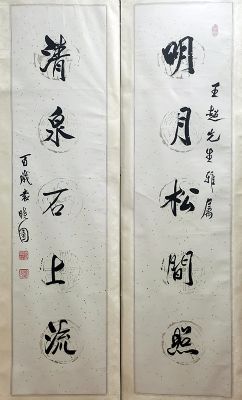 明月松間照
王超先生雅屬
清泉石上流
百歲袁曉園